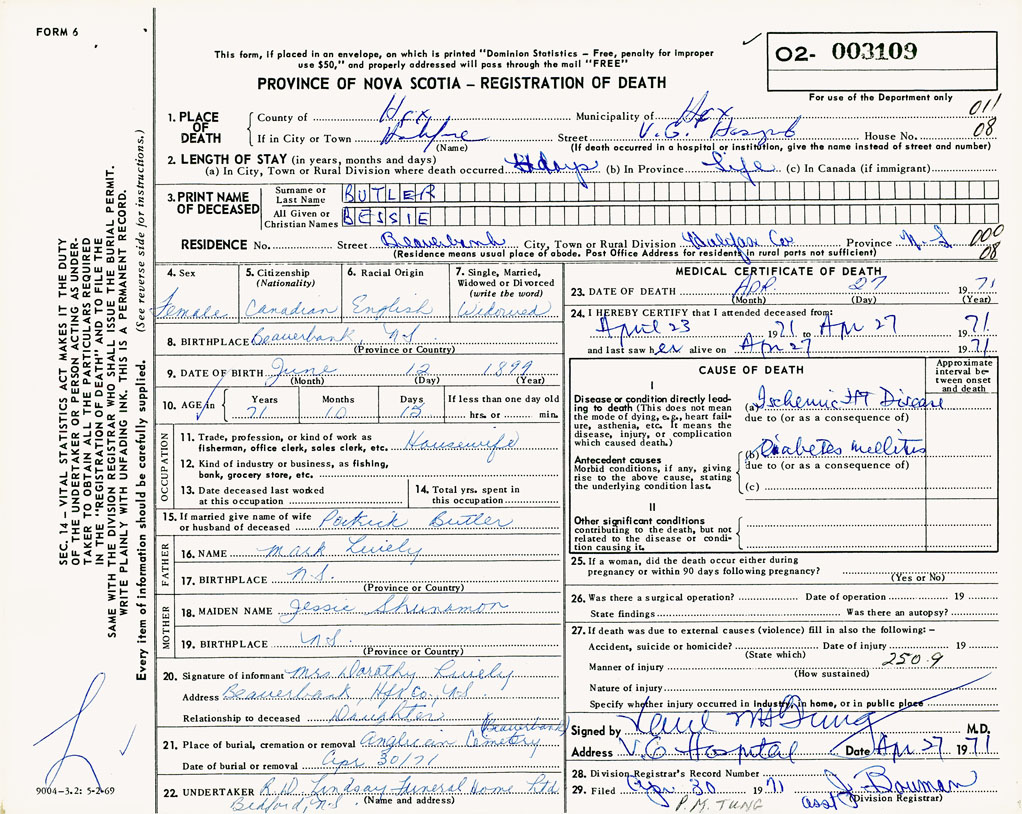 FORM 6
This form, if placed in an envelope, on which is printed "Dominion Statistics – Free, penalty for improper
use $50," and properly addressed will pass through the mail "FREE"
O2- 003109
PROVINCE OF NOVA SCOTIA – REGISTRATION OF DEATH
For use of the Department only
011
08
1. PLACE OF DEATH
County of Hfx Municipality of Hfx
If in City or Town Halifax Street V.G. Hospital House No.
(Name) (If death occurred in a hospital or institution, give the name instead of street and number)
2. LENGTH OF STAY (in years, months and days)
(a) In City, Town or Rural Division where death occurred 4 days (b) In Province Life (c) In Canada (if immigrant)
3. PRINT NAME OF DECEASED
Surname or Last Name BUTLER
All Given or Christian Names BESSIE
RESIDENCE No. Street Beaverbank City, Town or Rural Division Halifax Co Province N.S
000
08
(Residence means usual place of abode. Post Office Address for residents in rural parts not sufficient)
4. Sex
Female
5. Citizenship
(Nationality)
Canadian
6. Racial Origin
English
7. Single, Married,
Widowed or Divorced
(write the word)
Widowed
8. BIRTHPLACE Beaverbank, N.S
(Province or Country)
9. DATE OF BIRTH June 12 1899
(Month) (Day) (Year)
10. AGE in
Years Months Days If less than one day old
71 10 15 hrs. or min.
OCCUPATION
11. Trade, profession, or kind of work as
fisherman, office clerk, sales clerk, etc. Housewife
12. Kind of industry or business, as fishing,
bank, grocery store, etc.
13. Date deceased last worked
at this occupation
14. Total yrs. spent in
this occupation
15. If married give name of wife
or husband of deceased Patrick Butler
FATHER
16. NAME Mark Lively
17. BIRTHPLACE N.S.
(Province or Country)
MOTHER
18. MAIDEN NAME Jessie
19. BIRTHPLACE N.S.
(Province or Country)
20. Signature of informant Mrs Dorothy Lively
Address Beaverbank, Hfx Co., N.S.
Relationship to deceased Daughter
21. Place of burial, cremation or removal Anglican Cemetery (Beaverbank)
Date of burial or removal Apr 30/71
22. UNDERTAKER R.W. Lindsay Funeral Home Ltd
Bedford, N.S. (Name and address)
MEDICAL CERTIFICATE OF DEATH
23. DATE OF DEATH APR 27 1971
(Month) (Day) (Year)
24. I HEREBY CERTIFY that I attended deceased from:
April 23 1971 to Apr 27 1971
and last saw her alive on Apr 27 1971
CAUSE OF DEATH
Approximate
interval be-
tween onset
and death
I
Disease or condition directly lead-
ing to death (This does not mean
the mode of dying, e.g., heart fail-
ure, asthenia, etc. It means the
disease, injury, or complication
which caused death.)
(a) Ischemic HT Disease
due to (or as a consequence of)
Antecedent causes
Morbid conditions, if any, giving
rise to the above cause, stating
the underlying condition last.
(b) Diabetes mellitus
due to (or as a consequence of)
(c)
II
Other significant conditions
contributing to the death, but not
related to the disease or condi-
tion causing it.
25. If a woman, did the death occur either during
pregnancy or within 90 days following pregnancy?
(Yes or No)
26. Was there a surgical operation? Date of operation 19
State findings Was there an autopsy?
27. If death was due to external causes (violence) fill in also the following: –
Accident, suicide or homicide? Date of injury 19
(State which)
250.9
Manner of injury
(How sustained)
Nature of injury
Specify whether injury occurred in industry, in home, or in public place
Signed by Tung M.D.
Address V.G Hospital Date Apr 27 1971
28. Division Registrar's Record Number
29. Filed Apr 30 1971 J. Bowman
P.M. TUNG asst (Division Registrar)
SEC. 14 – VITAL STATISTICS ACT MAKES IT THE DUTY
OF THE UNDERTAKER OR PERSON ACTING AS UNDER-
TAKER TO OBTAIN ALL THE PARTICULARS REQUIRED
IN THE "REGISTRATION OF DEATH" AND TO FILE THE
SAME WITH THE DIVISION REGISTRAR WHO SHALL ISSUE THE BURIAL PERMIT.
WRITE PLAINLY WITH UNFADING INK. THIS IS A PERMANENT RECORD.
Every item of information should be carefully supplied. (See reverse side for instructions.)
9004-3.2: 5-2-69